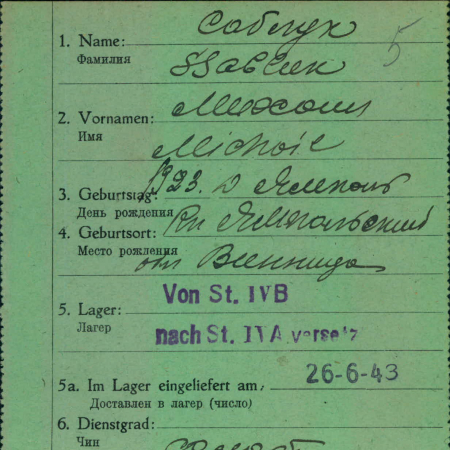 Саблук
1. Name:
Фамилия
Sabluk
5
2. Vornamen: Михаил
Имя
Michail
3. Geburtstag: 1923. д Ямполь
День рождения
4. Geburtsort: Ямпольский
Место рождения
обл Винница
Von St. IVB
5. Lager:
Лагерь
nach St. IVA versetz
26-6-43
5a. Im Lager eingeliefert am:
Доставлен в лагерь (число)
6. Dienstgrad:
Чин